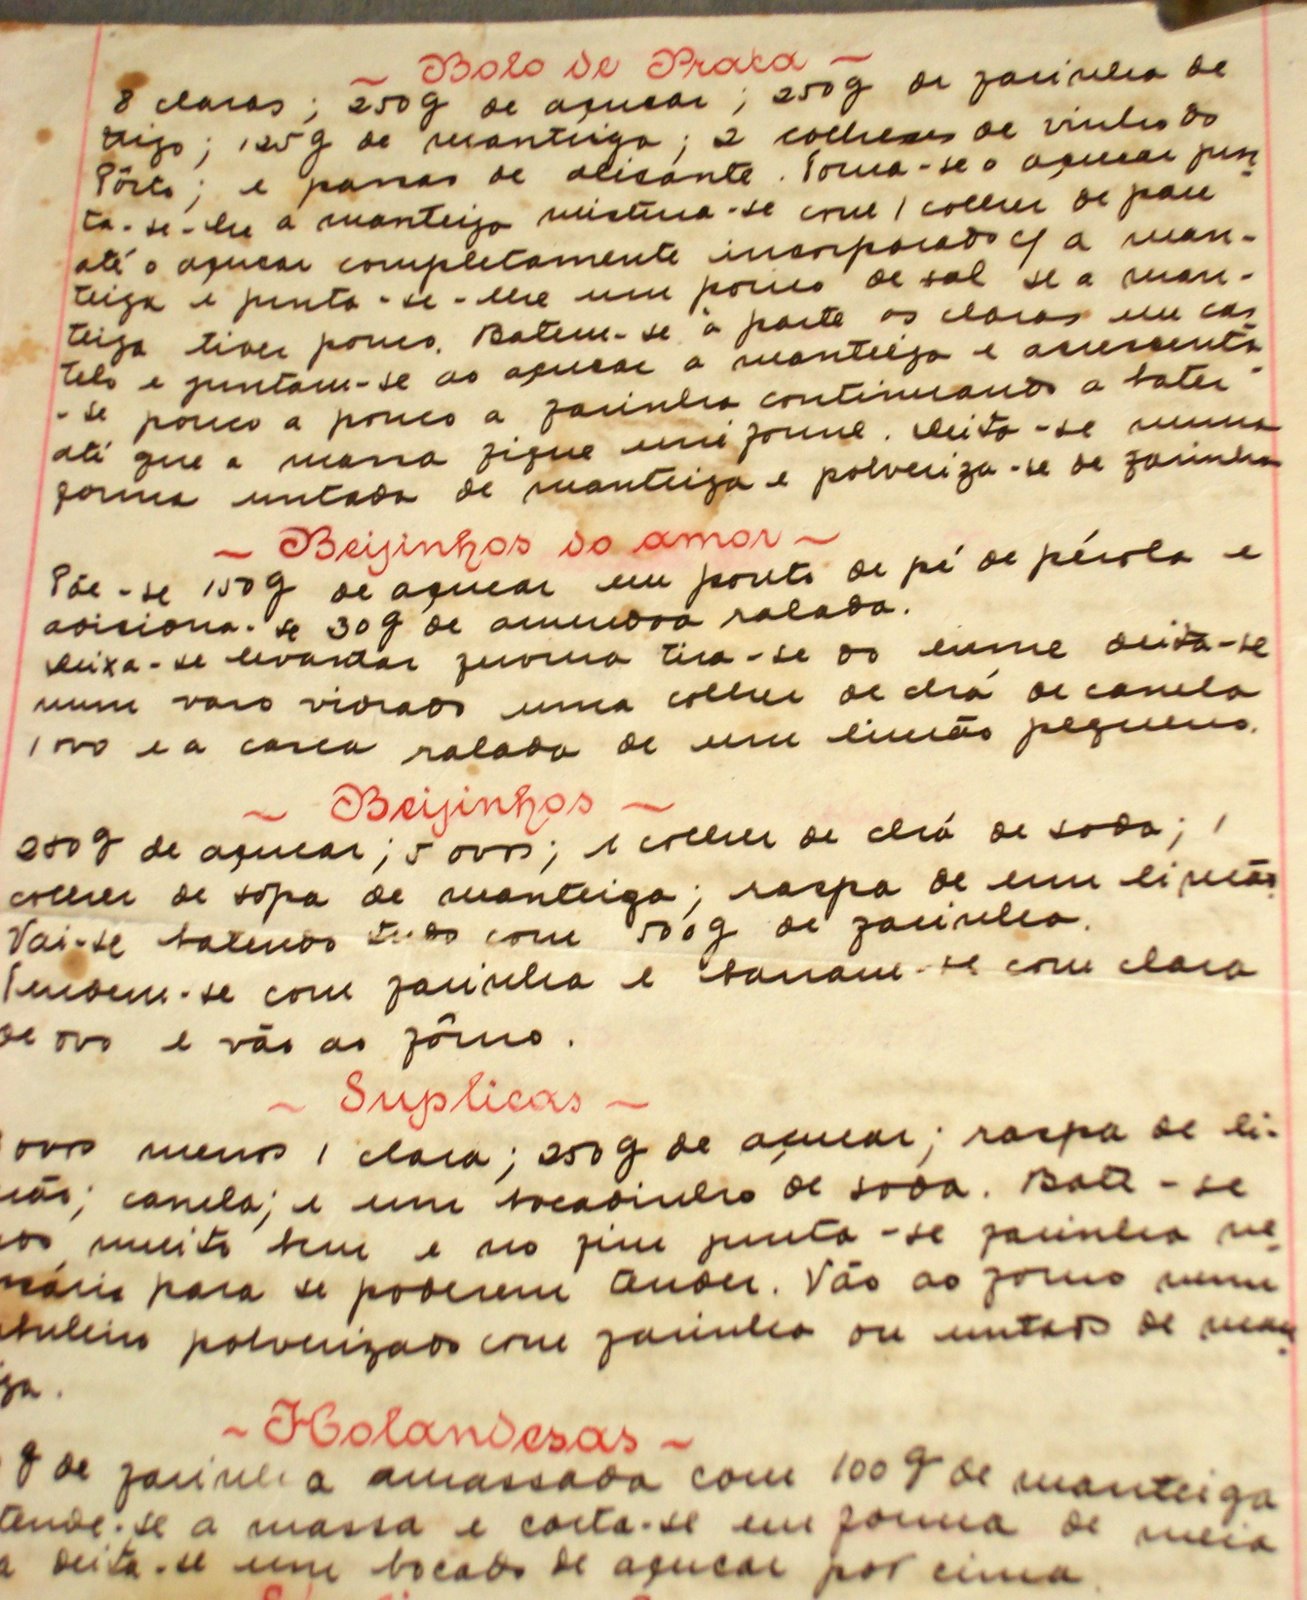 ~ Bolo de Prata ~
8 claras; 250g de açucar; 250g de farinha de
trigo; 125g de manteiga; 2 colheres de vinho do
Pôrto; e passas de alicante. Toma-se o açucar jun
ta-se-lhe a manteiga mistura-se com 1 colher de pau
até o açucar completamente incorporado c/ a man-
teiga e junta-se-lhe um pouco de sal se a man-
teiga tiver pouco. Batem-se à parte as claras em cas
telo e juntam-se ao açucar a manteiga e acrescenta
-se pouco a pouco a farinha continuando a bater
até que a massa fique uniforme. Deita-se numa
forma untada de manteiga e polveriza-se de farinha
~ Beijinhos do amor ~
Põe-se 150g de açucar em ponto de pé de pérola e
adiciona-se 30g de amendoa ralada.
Deixa-se levantar fervura tira-se do lume deita-se
num vaso vidrado uma colher de chá de canela
1 ovo e a casca ralada de um limão pequeno.
~ Beijinhos ~
250g de açucar; 5 ovos; 1 colher de chá de soda; 1
colher de sôpa de manteiga; raspa de um limão
Vai-se batendo tudo com 500g de farinha.
Tendem-se com farinha e barram-se com clara
de ovo e vão ao fôrno.
~ Suplicas ~
ovos menos 1 clara; 250g de açucar; raspa de li-
mão; canela; e um bocadinho de soda. Bate-se
muito bem e no fim junta-se farinha ne
ssária para se poderem tender. Vão ao forno num
abuleiro polverizado com farinha ou untado de man
iga.
~ Holandesas ~
g de farinha amassada com 100g de manteiga
tende-se a massa e corta-se em forma de meia
a deita-se um bocado de açucar por cima.